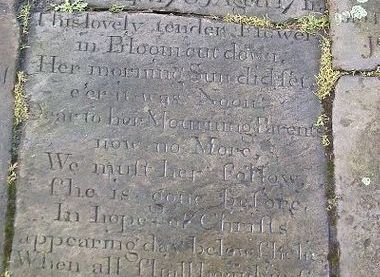 This lovely tender Flower
in Bloom cut down,
Her morning Sun did set,
e'er it was Noon,
Dear to her Mourning Parents
now no More,
We must her follow
she is gone before,
In hope of Christs
appearing day below
When all shall